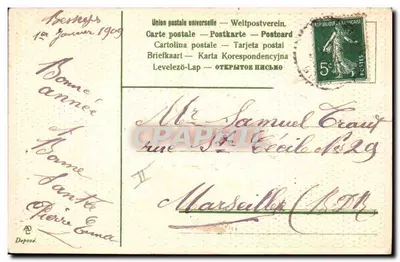 1er Janvier 1909
Bonne
année
&
Bonne
Santé
Pierre
Déposé
Union postale universelle – Weltpostverein.
Carte postale – Postkarte – Postcard
Cartolina postale – Tarjeta postal
Briefkaart – Karta Korespondencyjna
Levelező-Lap – ОТКРЫТОЕ ПИСЬМО
5c
POSTES
Mr Samuel
rue Ste Cécile No 29
II
Marseille (B.D.R)
CPARAMA